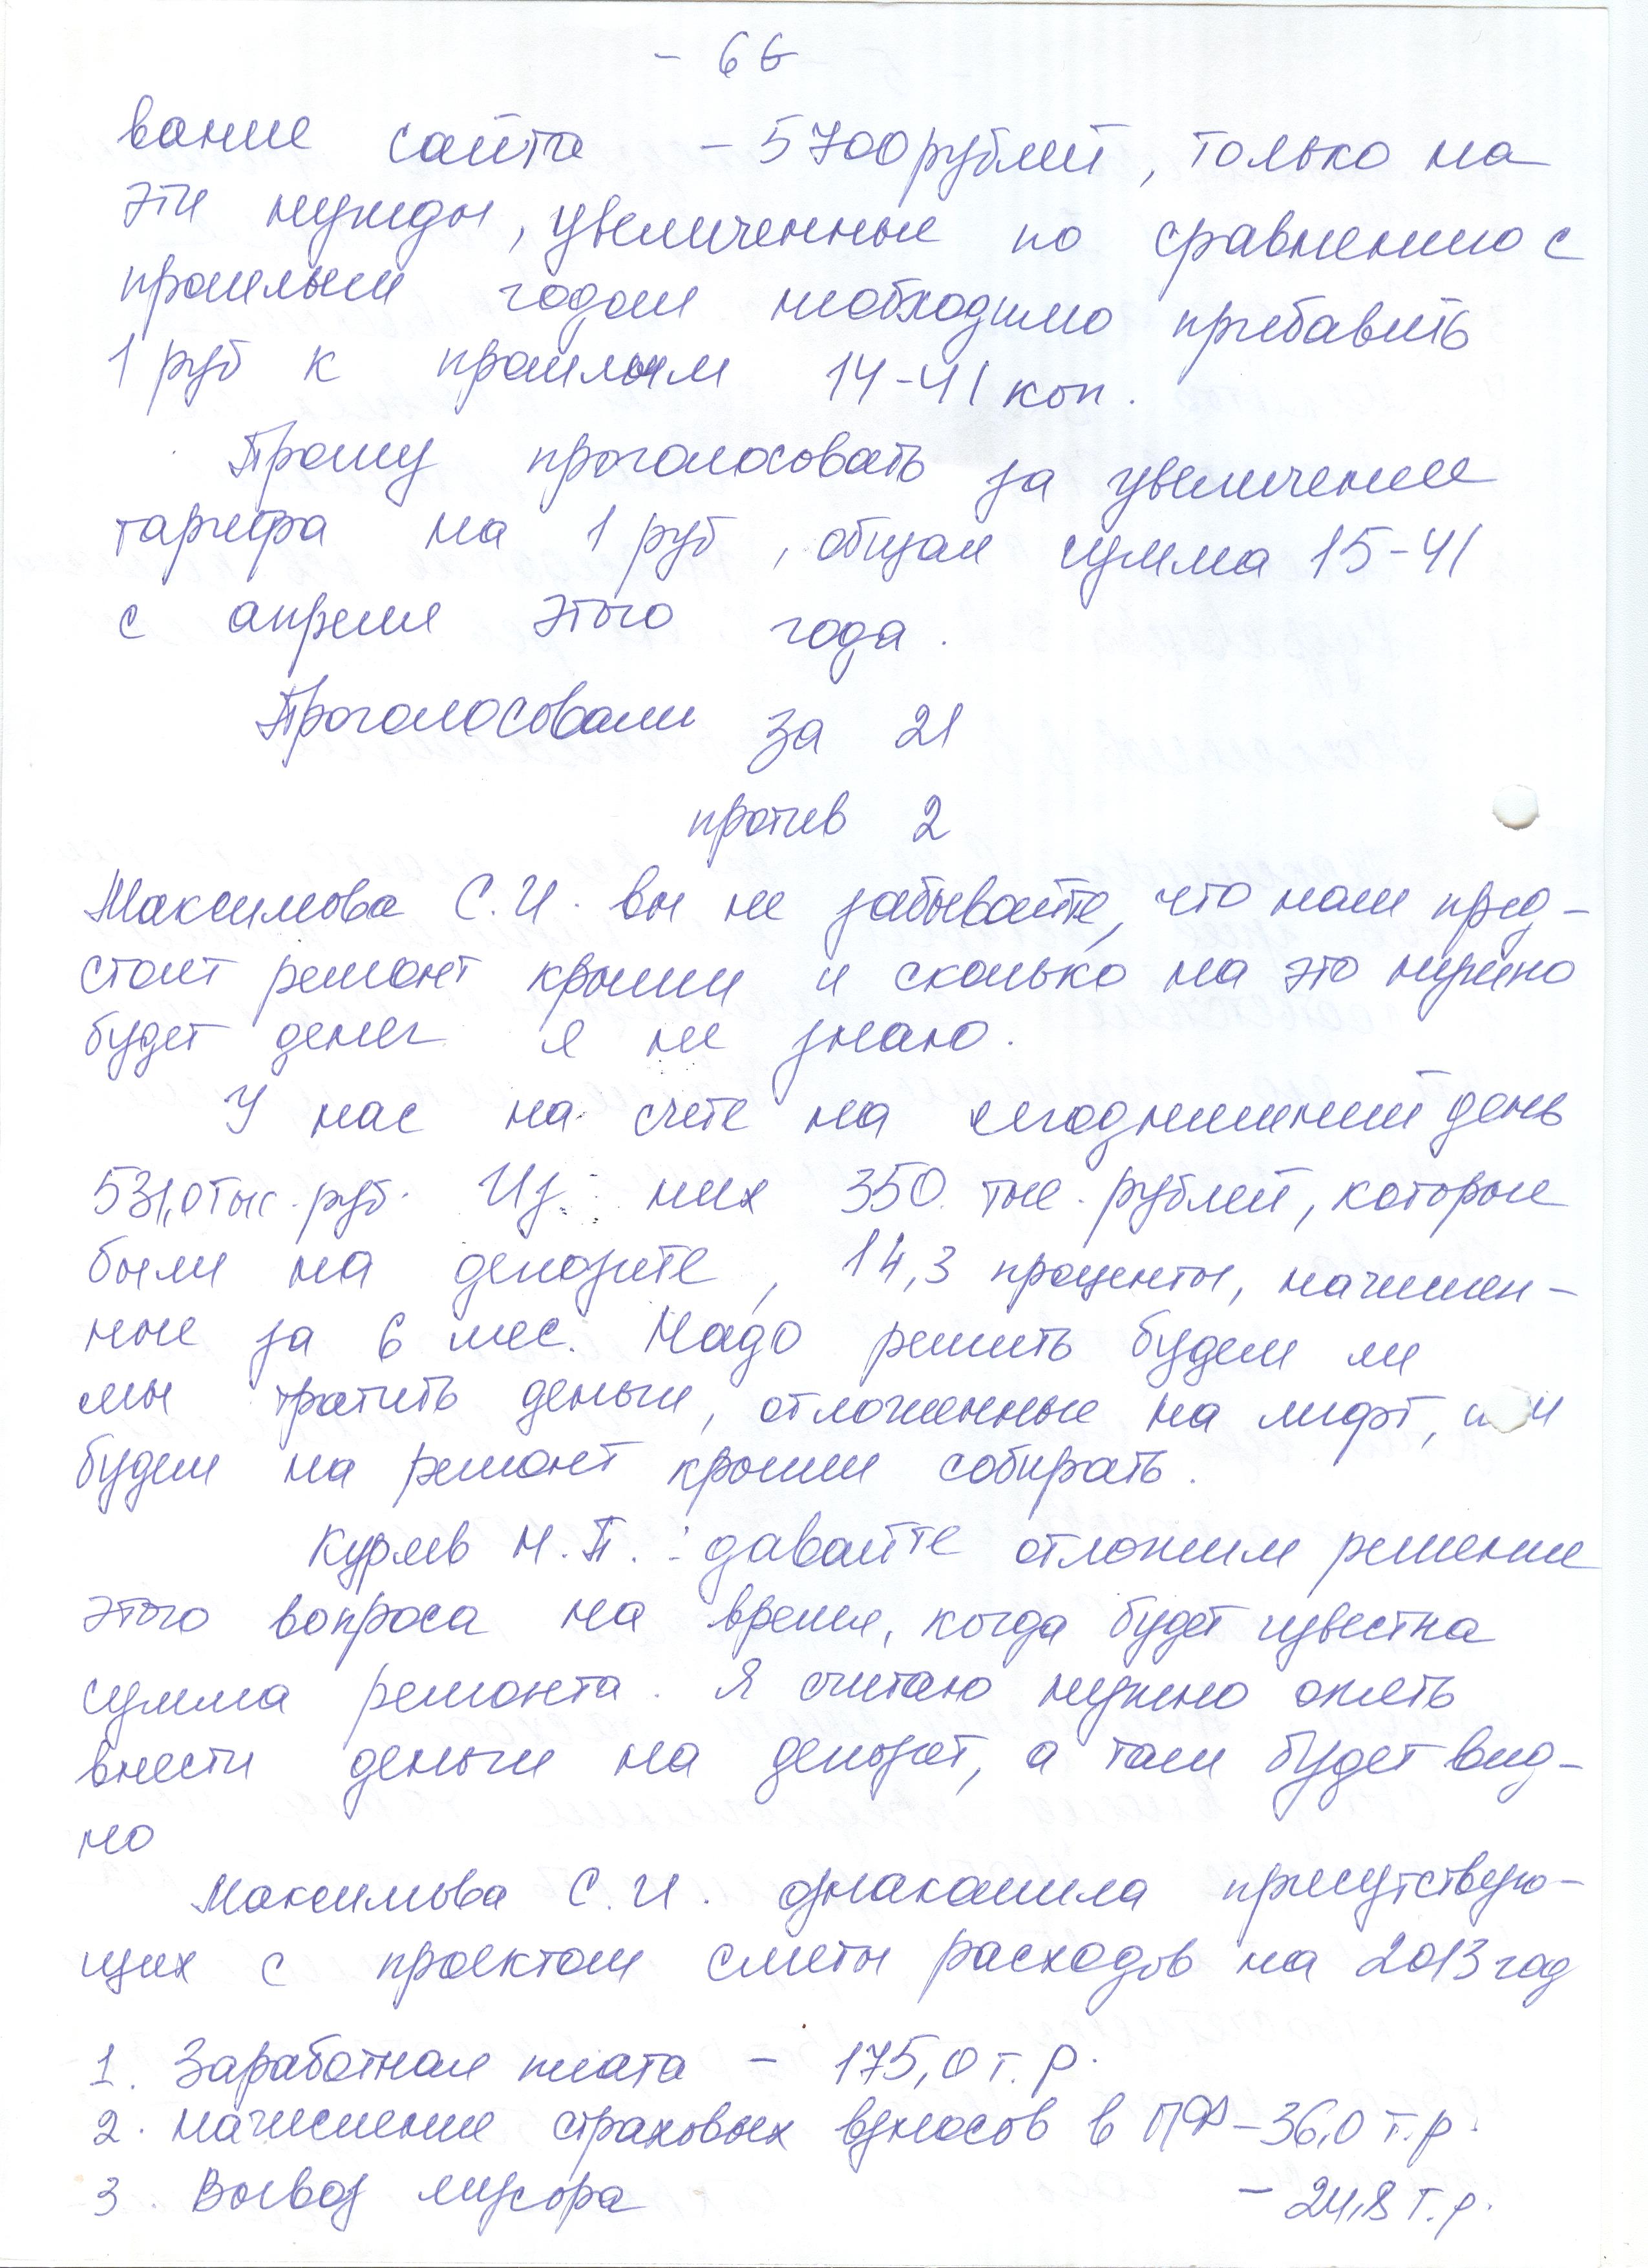 - 6б
вание сайта - 5700 рублей, только на
эти нужды, увеличенные по сравнению с
прошлым годом необходимо прибавить
1 руб к прошлым 14-41 коп.
Прошу проголосовать за увеличение
тарифа на 1 руб, общая сумма 15-41
с апреля этого года.
Проголосовали за 21
против 2
Максимова С.И. вы не забывайте, что нам пред-
стоит ремонт крыши и сколько на это нужно
будет денег я не знаю.
У нас на счете на сегодняшний день
531,0 тыс. руб. Из них 350 тыс. рублей, которые
были на депозите, 14,3 проценты, начислен-
ные за 6 мес. Надо решить будем ли
мы тратить деньги, отложенные на лифт, или
будем на ремонт крыши собирать.
Н.П.: давайте отложим решение
этого вопроса на время, когда будет известна
сумма ремонта. Я считаю нужно опять
внести деньги на депозит, а там будет вид-
но
Максимова С.И. ознакомила присутствую-
щих с проектом сметы расходов на 2013 год
1. Заработная плата - 175,0 т.р.
2. Начисление страховых взносов в ПФ - 36,0 т.р.
3. Вывоз мусора - 24,8 т.р.